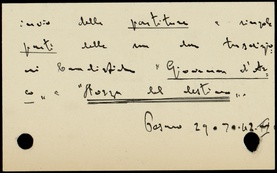 invio delle partiture e singole
parti delle sue due trascrizio
ni bandistiche "Giovanna d'Ar
co" e "Forza del destino".
Pesaro 29.70.42.